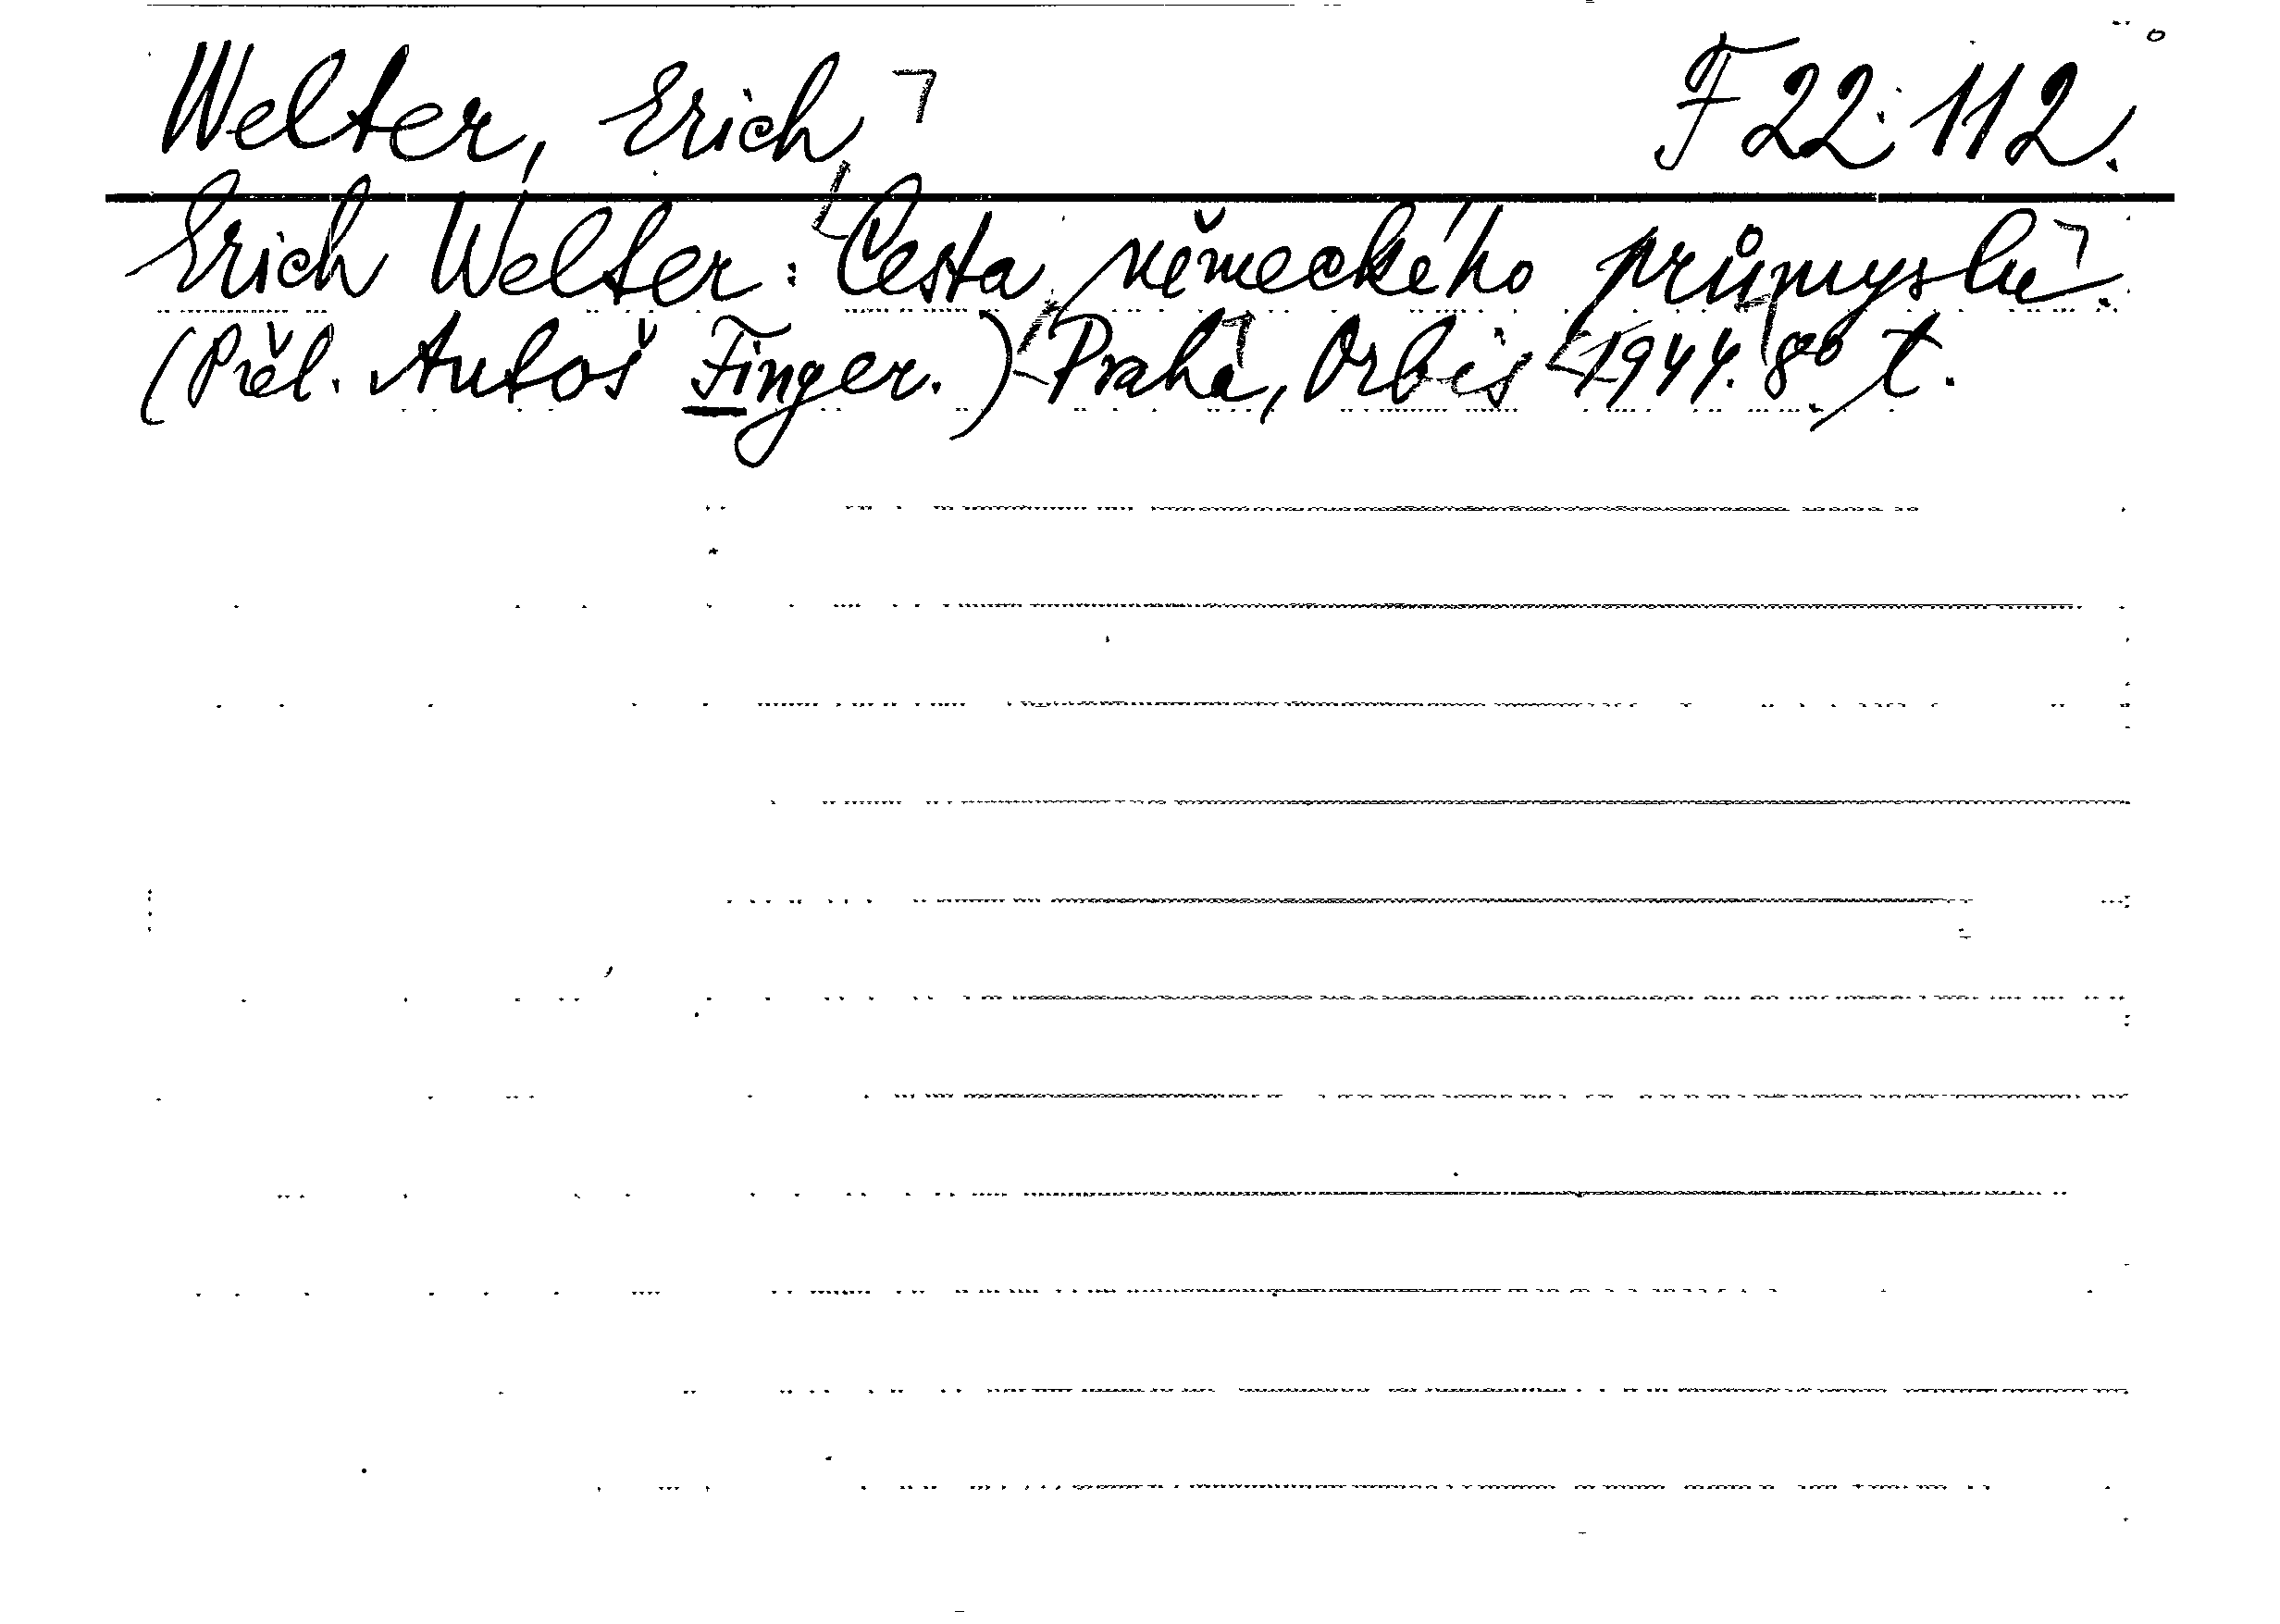 Welter, Erich F 22: 112.
Erich Welter: Cesta německého průmyslu.
(Přel. Antoš Finger.) Praha, Orbis 1944. 8° t.